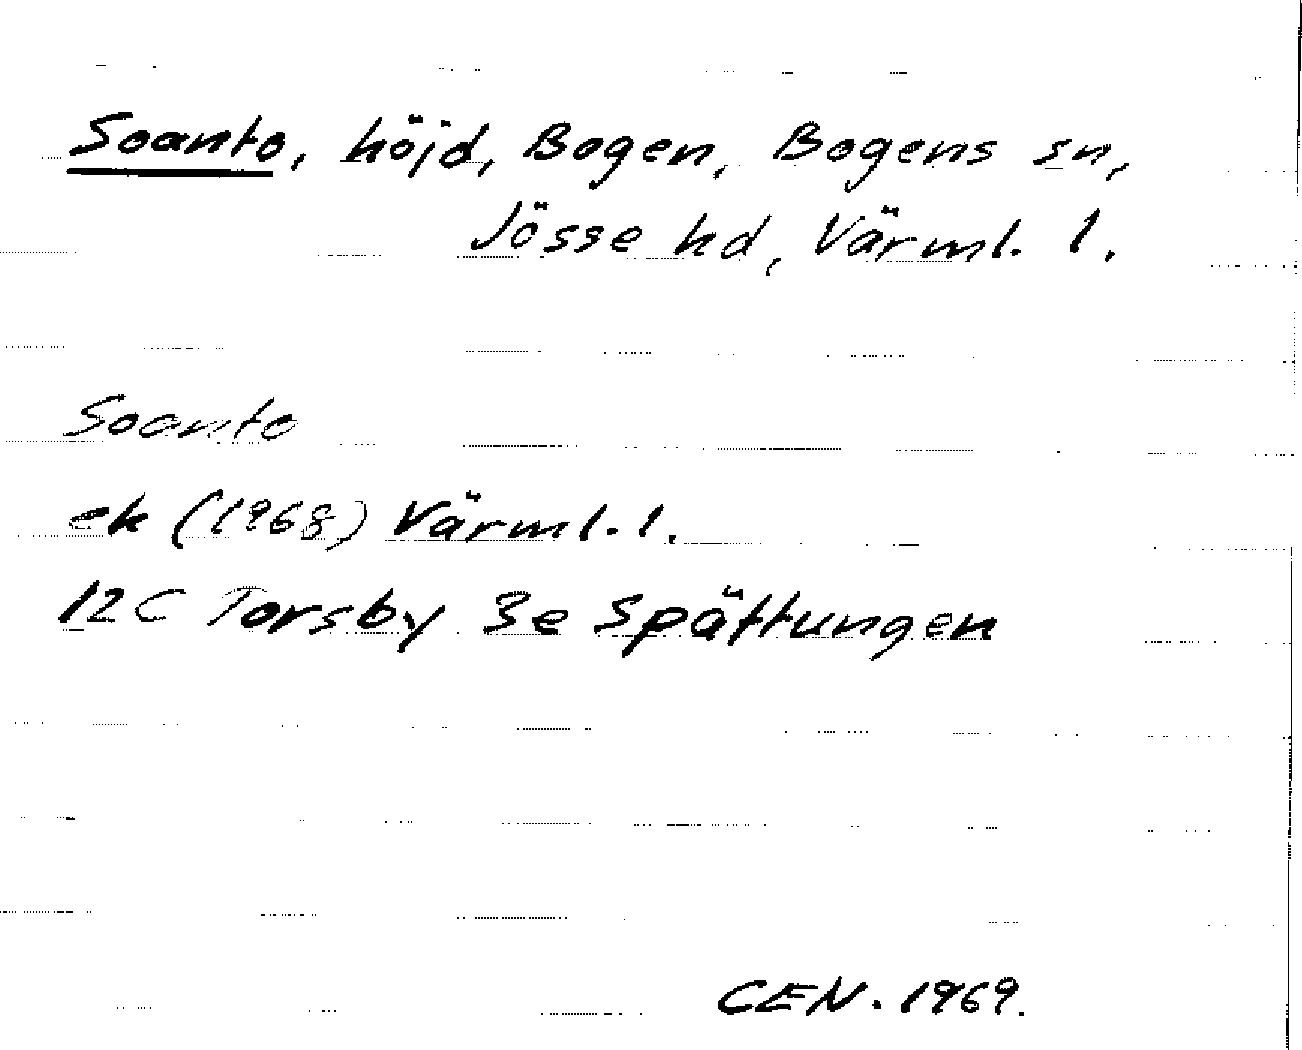 Soanto, höjd, Bogen, Bogens sn,
Jösse hd, Värml. l.
Soanto
ek (1968) Värml. l.
12C Torsby 3e Spättungen
CEN. 1969.